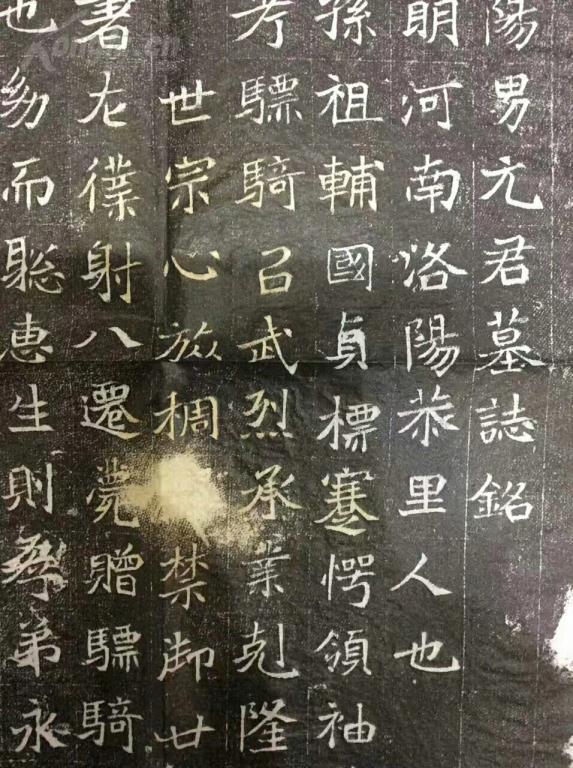 陽男元君墓誌銘
明河南洛陽恭里人也
孫祖輔國貞標蹇愕領袖
考驃騎召武烈承業剋隆
世宗心旅棡禁御世
書左僕射八遷薨贈驃騎
也幼而聡惠生則孝弟永